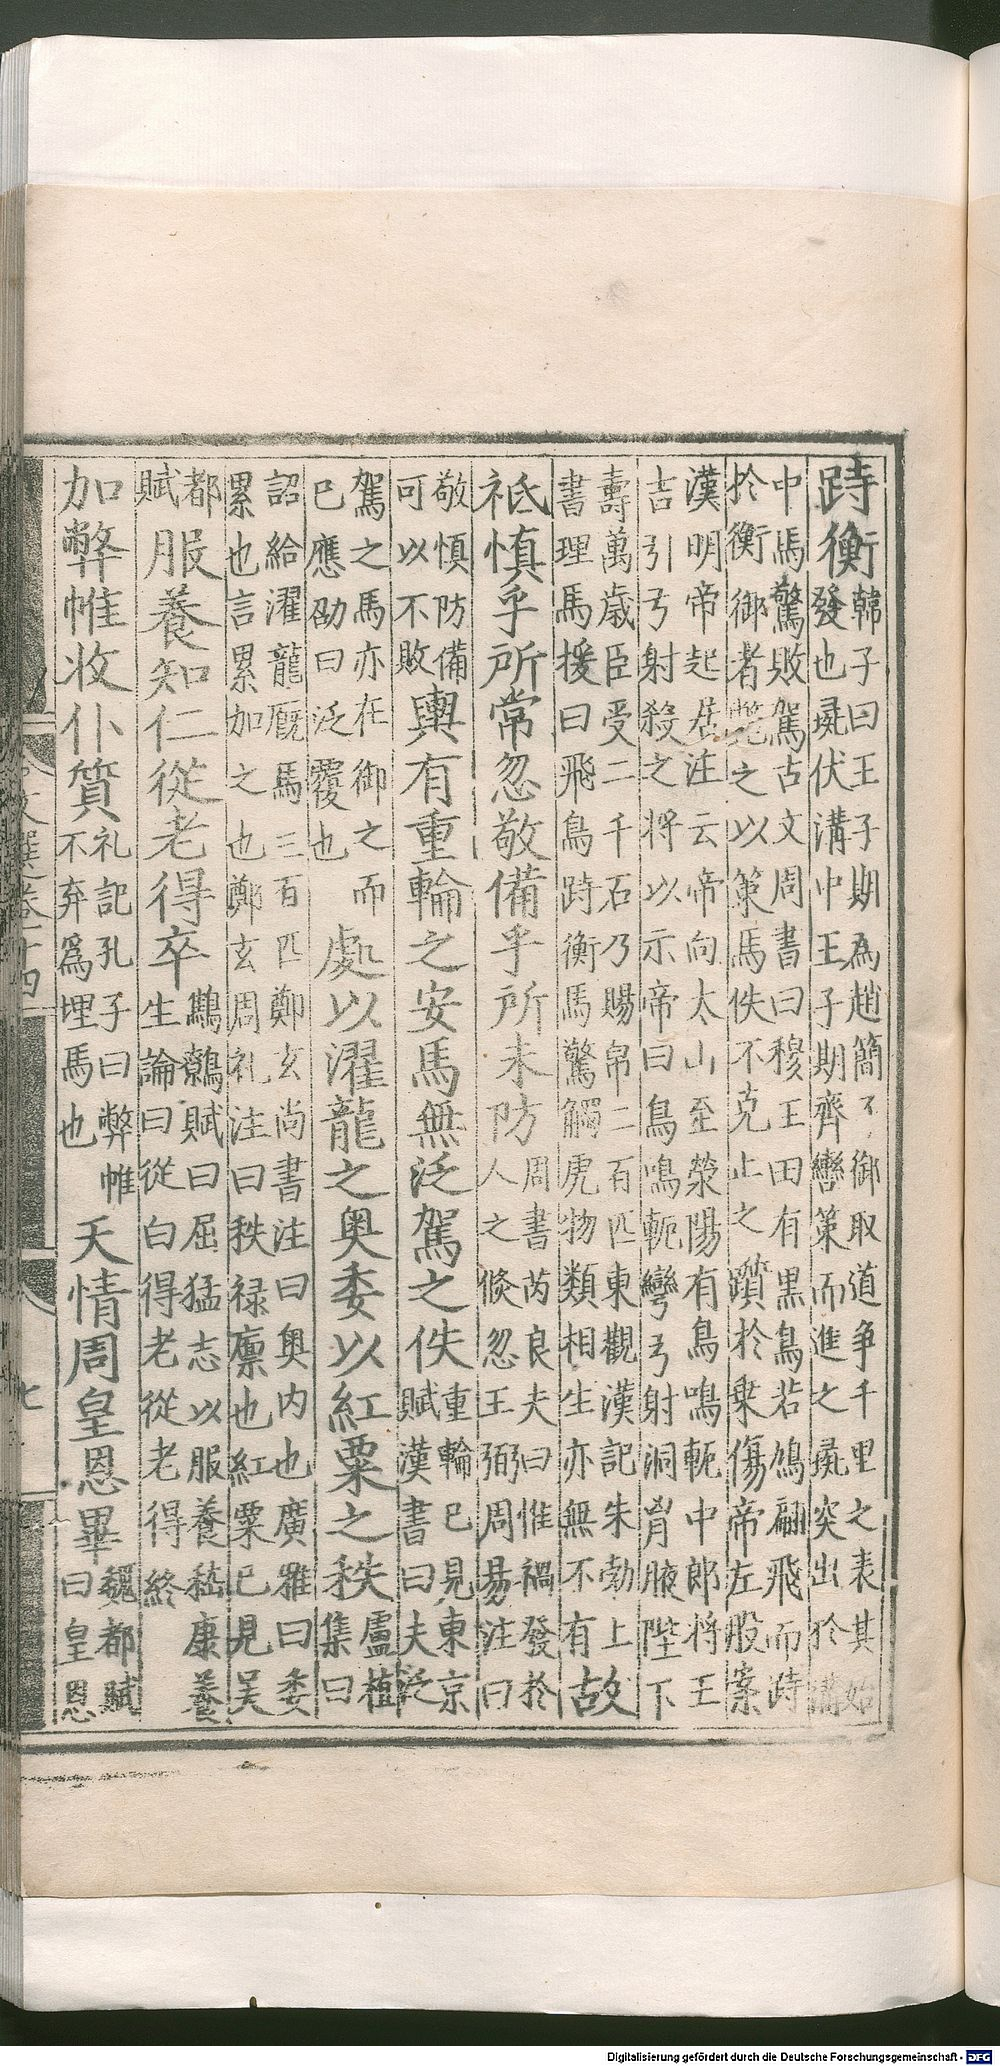 跱衡
韓子曰王子期為趙簡子御取道争千里之表其始
發也彘伏溝中王子期齊轡策而進之彘突出於溝
中馬驚敗駕古文周書曰穆王田有黒鳥若鳩翩飛而跱
於衡御者斃之以策馬佚不克止之躓於乗傷帝左股案
漢明帝起居注云帝向太山至滎陽有鳥鳴軛中郎將王
吉引弓射殺之將以示帝曰鳥鳴軛彎弓射洞胷腋陛下
壽萬歳臣受二千石乃賜帛二百匹東觀漢記朱勃上
書理馬援曰飛鳥跱衡馬驚觸虎物類相生亦無不有
故
祗慎乎所常忽敬備乎所未防
周書芮良夫曰惟禍發於
人之倏忽王弼周易注曰
敬慎防備
可以不敗
輿有重輪之安馬無泛駕之佚
重輪已見東京
賦漢書曰夫泛
駕之馬亦在御之而
已應劭曰泛覆也
處以濯龍之奥委以紅粟之秩
盧植
集曰
詔給濯龍厩馬三百匹鄭玄尚書注曰奥内也廣雅曰委
累也言累加之也鄭玄周礼注曰秩禄廪也紅粟已見吴
都
賦
服養知仁從老得卒
鷦鷯賦曰屈猛志以服養嵇康養
生論曰從白得老從老得終
加弊帷收仆質
礼記孔子曰弊帷
不弃為埋馬也
天情周皇恩畢
魏都賦
曰皇恩
文選卷十四
七
Digitalisierung gefördert durch die Deutsche Forschungsgemeinschaft - DFG